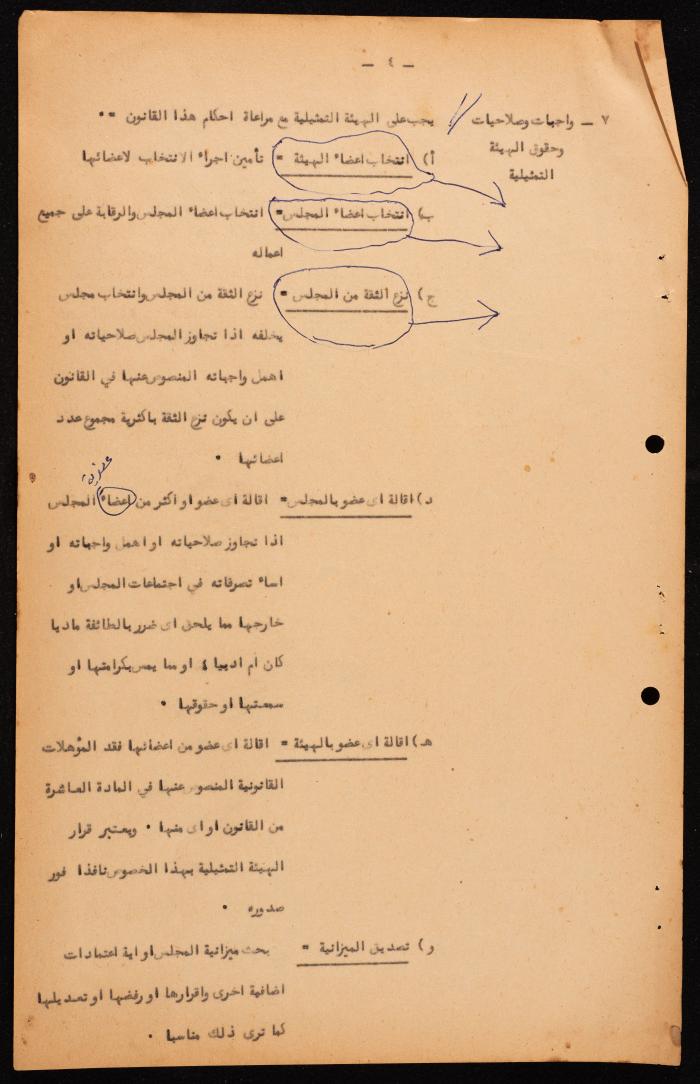 — ٤ —
٧ — واجبات وصلاحيات يجب على الهيئة التمثيلية مع مراعاة احكام هذا القانون =•
وحقوق الهيئة أ) انتخاب اعضاء الهيئة = تأمين اجراء الانتخاب لاعضائها
التمثيلية
ب) انتخاب اعضاء المجلس = انتخاب اعضاء المجلس والرقابة على جميع
اعماله
ج) نزع الثقة من المجلس = نزع الثقة من المجلس وانتخاب مجلس
يخلفه اذا تجاوز المجلس صلاحياته او
اهمل واجباته المنصوص عنها في القانون
على ان يكون نزع الثقة باكثرية مجموع عدد
اعضائها •
د) اقالة اى عضو بالمجلس = اقالة اى عضو او اكثر من اعضاء المجلس
اذا تجاوز صلاحياته او اهمل واجباته او
اساء تصرفاته في اجتماعات المجلس او
خارجها مما يلحق اى ضرر بالطائفة ماديا
كان أم ادبيا ٤ او مما يمس بكرامتها او
سمعتها او حقوقها •
هـ) اقالة اى عضو بالهيئة = اقالة اى عضو من اعضائها فقد المؤهلات
القانونية المنصوص عنها في المادة العاشرة
من القانون او اى منها • ويعتبر قرار
الهيئة التمثيلية بهذا الخصوص نافذا فور
صدوره •
و) تصديق الميزانية = بحث ميزانية المجلس او اية اعتمادات
اضافية اخرى واقرارها او رفضها او تعديلها
كما ترى ذلك مناسبا •